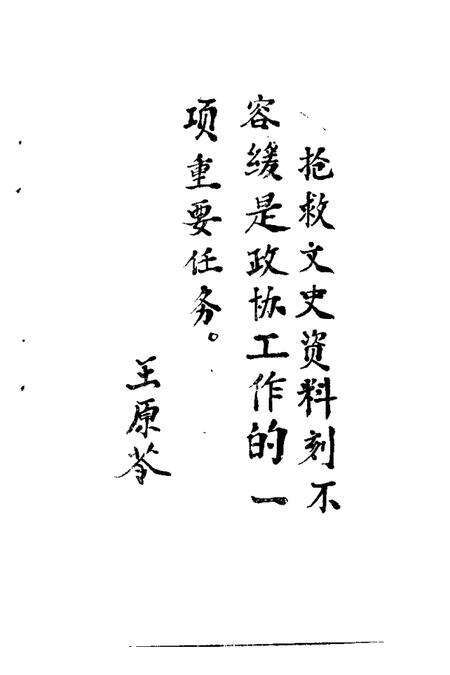 抢救文史资料刻不
容缓是政协工作的一
项重要任务。
王原苓